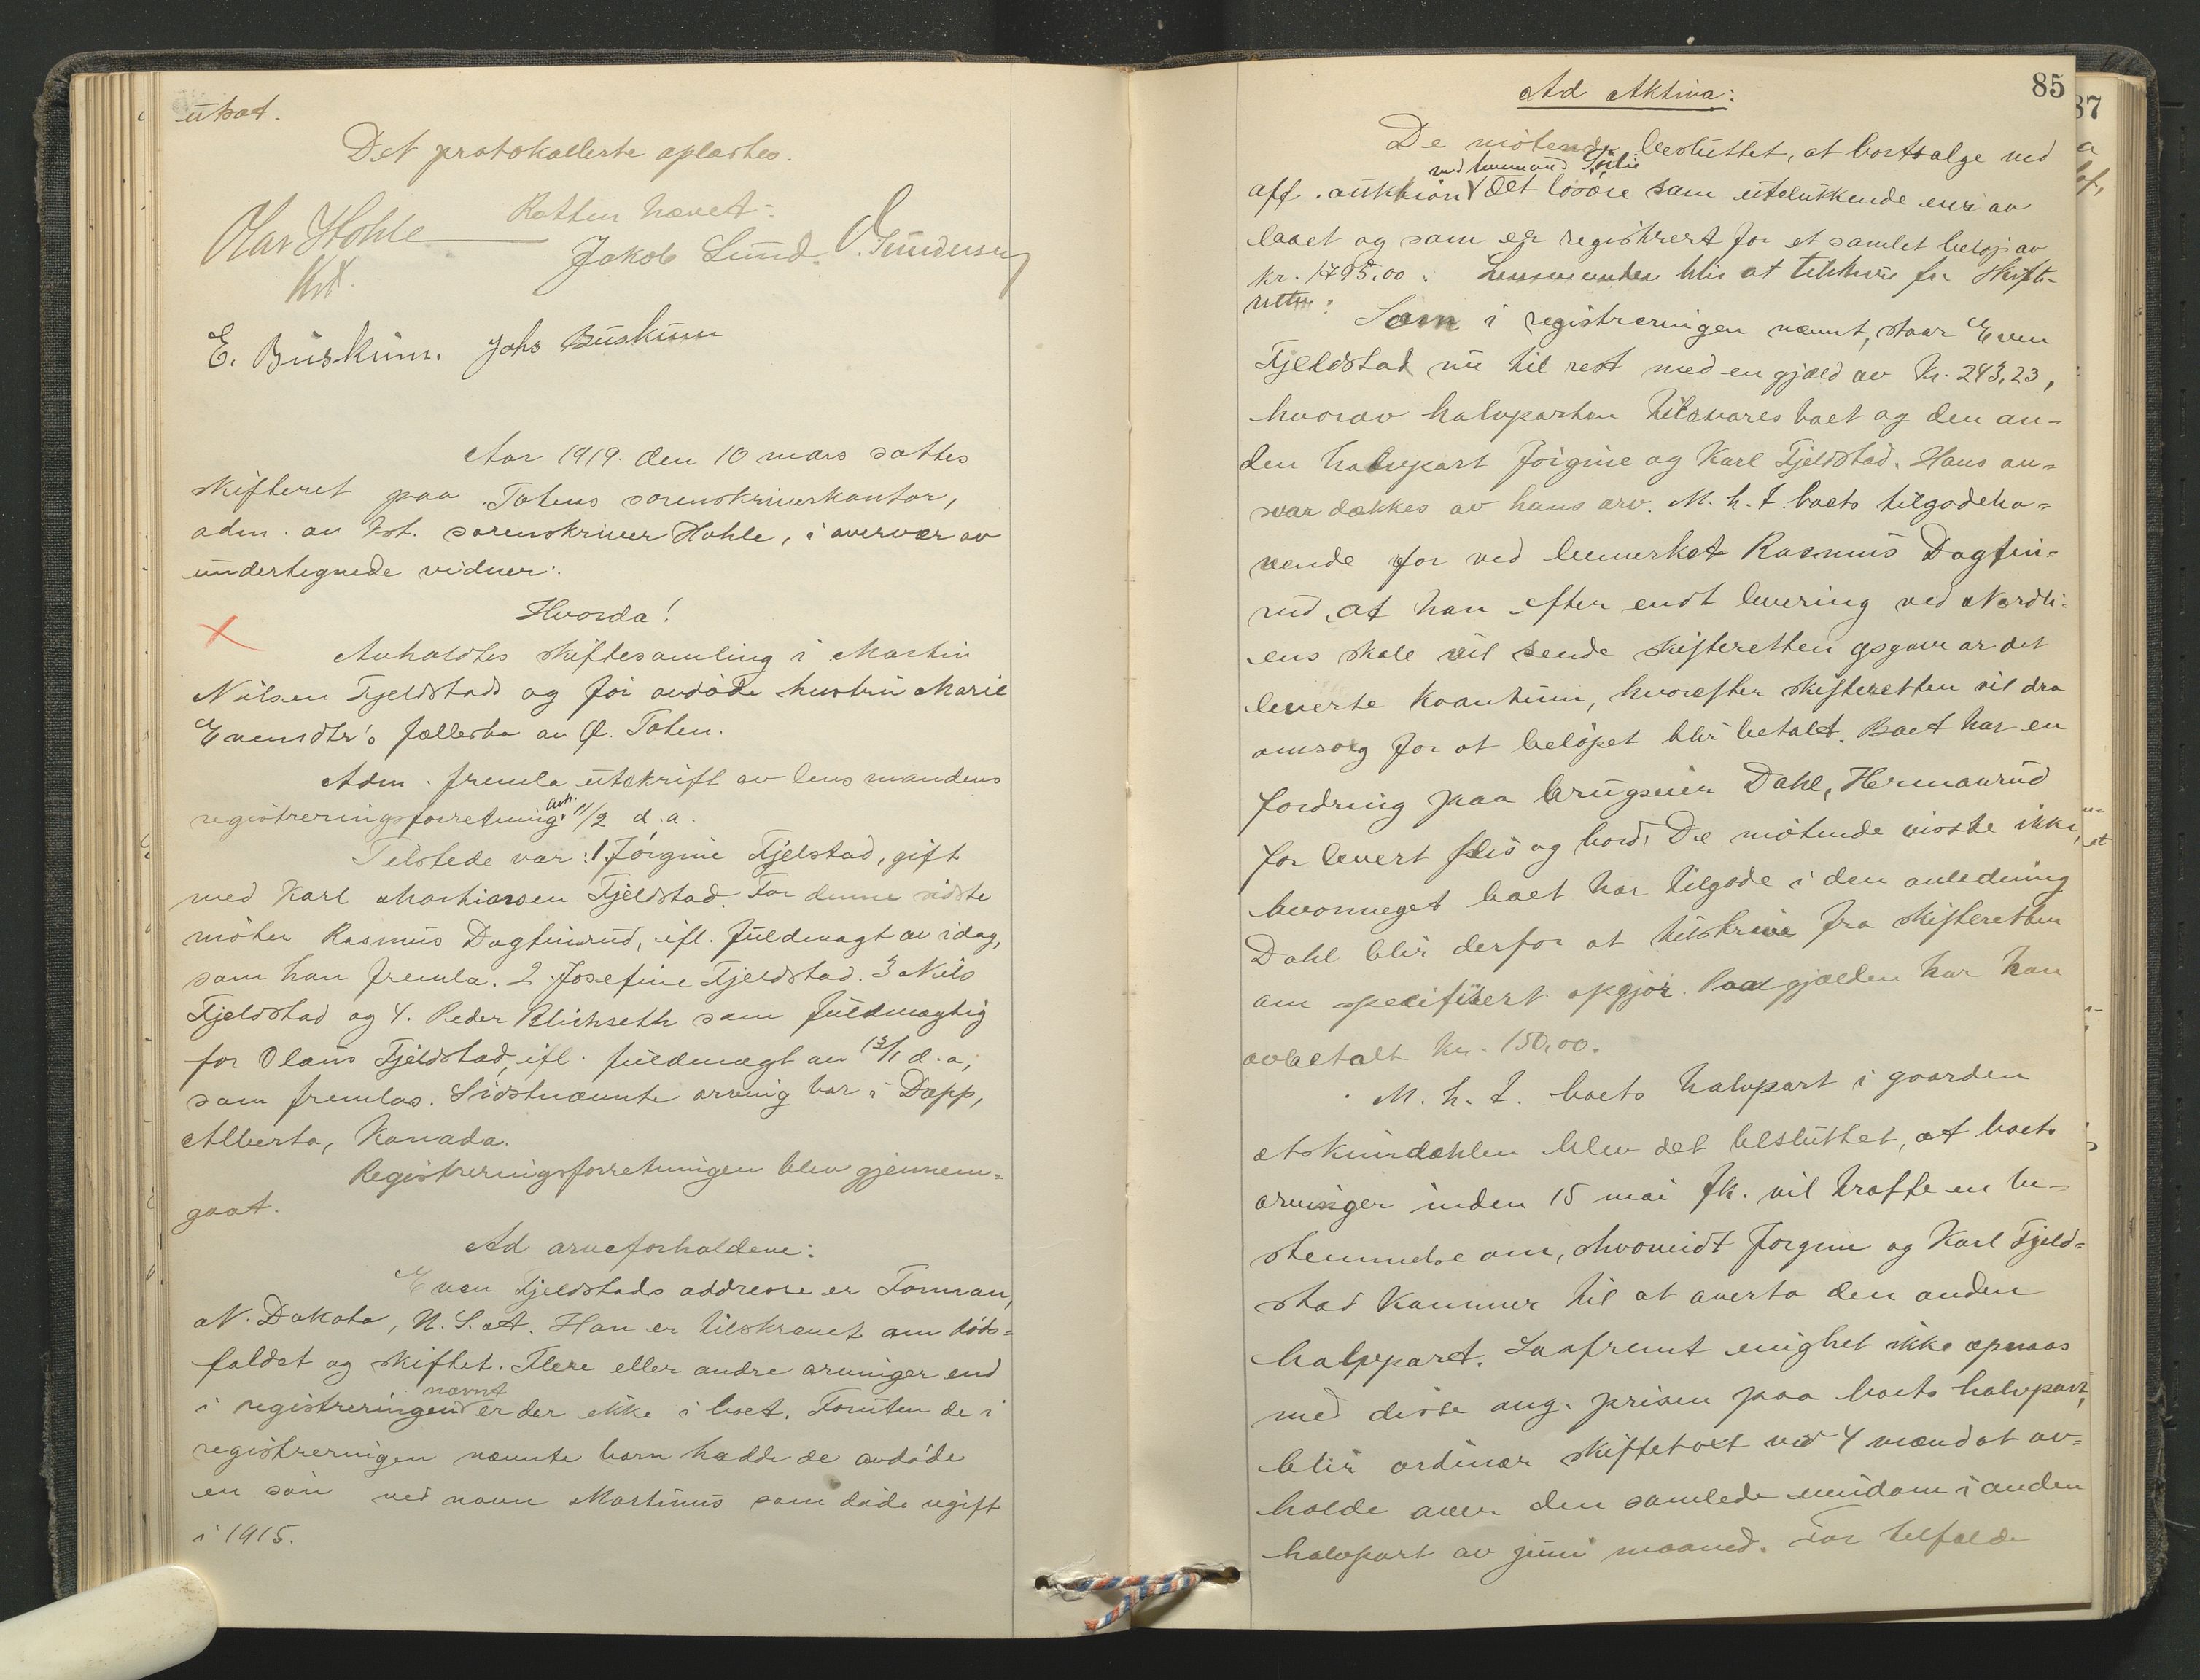 utsat.
Det protokollerte oplæstes.
Retten hævet:
Olav Hohle
Kst.
Jakob Lund. O. Gundersen
E. Buskum. Johs Buskum
Aar 1919 den 10 mars sattes
skifteret paa Totens sorenskriverkontor,
adm. av kst. sorenskriver Hohle, i overvær av
undertegnede vidner:
Hvorda!
Anholdtes skiftesamling i Martin
Nilsen Fjeldstads og før avdøde hustru Marie
Evensdtr's fællesbo av Ø. Toten.
Adm. fremla utskrift av lensmandens
registreringsforretning avh. 11/2 d.a.
Tilstede var: 1. Jørgine Fjelstad, gift
med Karl Martinsen Fjeldstad. For denne sidste
møter Rasmus Dagfinrud, ifl. fuldmagt av idag,
som han fremla. 2 Josefine Fjeldstad. 3 Nils
Fjeldstad og 4. Peder Blichseth som fuldmægtig
for Olaus Fjeldstad, ifl. fuldmagt av 13/1 d.a.,
som fremlas. Sidstnævnte arving bor i Dapp,
Alberta, Kanada.
Registreringsforretningen blev gjennem-
gaat.
Ad arveforholdene:
Even Fjeldstads addresse er Forman,
N. Dakota, U.S.A. Han er tilskrevet om døds-
faldet og skiftet. Flere eller andre arvinger end
i registreringen nævnt er der ikke i boet. Foruten de i
registreringen nævnte barn hadde de avdøde
en søn ved navn Martinus som døde ugift
i 1915.
85
87
Ad Aktiva:
De møtende besluttet, at bortsælge ved
off. auktion ved lensmand Sørlie det løsøre som utelukkende eies av
boet og som er registrert for et samlet beløp av
kr. 1795.00. Lensmanden blir at tilskrive fra skifte-
retten:
Som i registreringen nævnt, staar Even
Fjeldstad nu til rest med en gjæld av kr. 243,23,
hvorav halvparten tilsvares boet og den an-
den halvpart Jørgine og Karl Fjeldstad. Hans an-
svar dækkes av hans arv. M.h.t. boets tilgodeha-
vende for ved bemerket Rasmus Dagfin-
rud, at han efter endt levering ved Nordli-
ens skole vil sende skifteretten opgave av det
leverte kvantum, hvorefter skifteretten vil dra
omsorg for at beløpet blir betalt. Boet har en
fordring paa brugseier Dahl, Hermanrud
for levert flis og bord. De møtende visste ikke,
hvormeget boet har tilgode i den anledning
Dahl blir derfor at tilskrive fra skifteretten
om specifisert opgjør. Paa gjælden har han
avbetalt kr. 150,00.
M.h.t. boets halvpart i gaarden
blev det besluttet, at boets
arvinger inden 15 mai fk. vil træffe en be-
stemmelse om, hvorvidt Jørgine og Karl Fjeld-
stad kommer til at overta den anden
halvpart. Saafremt enighet ikke opnaas
med disse ang. prisen paa boets halvpart,
blir ordinær skiftetakst ved 4 mænd at av-
holde over den samlede eiendom i anden
halvpart av juni maaned. For tilfælde